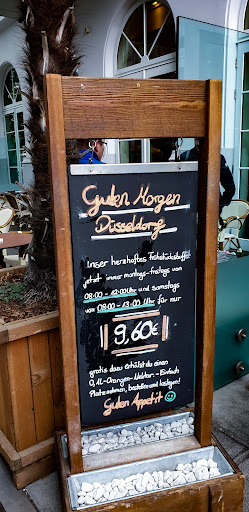 Guten Morgen
Düsseldorf
Unser herzhaftes Frühstücksbuffet
jetzt immer montags-freitags von
08:00 - 12:00 Uhr und samstags
von 08:00 - 13:00 Uhr für nur
9,60€
gratis dazu erhälst du einen
0,1L-Orangen-Nektar. - Einfach
Platz nehmen, bestellen und loslegen!
Guten Appetit